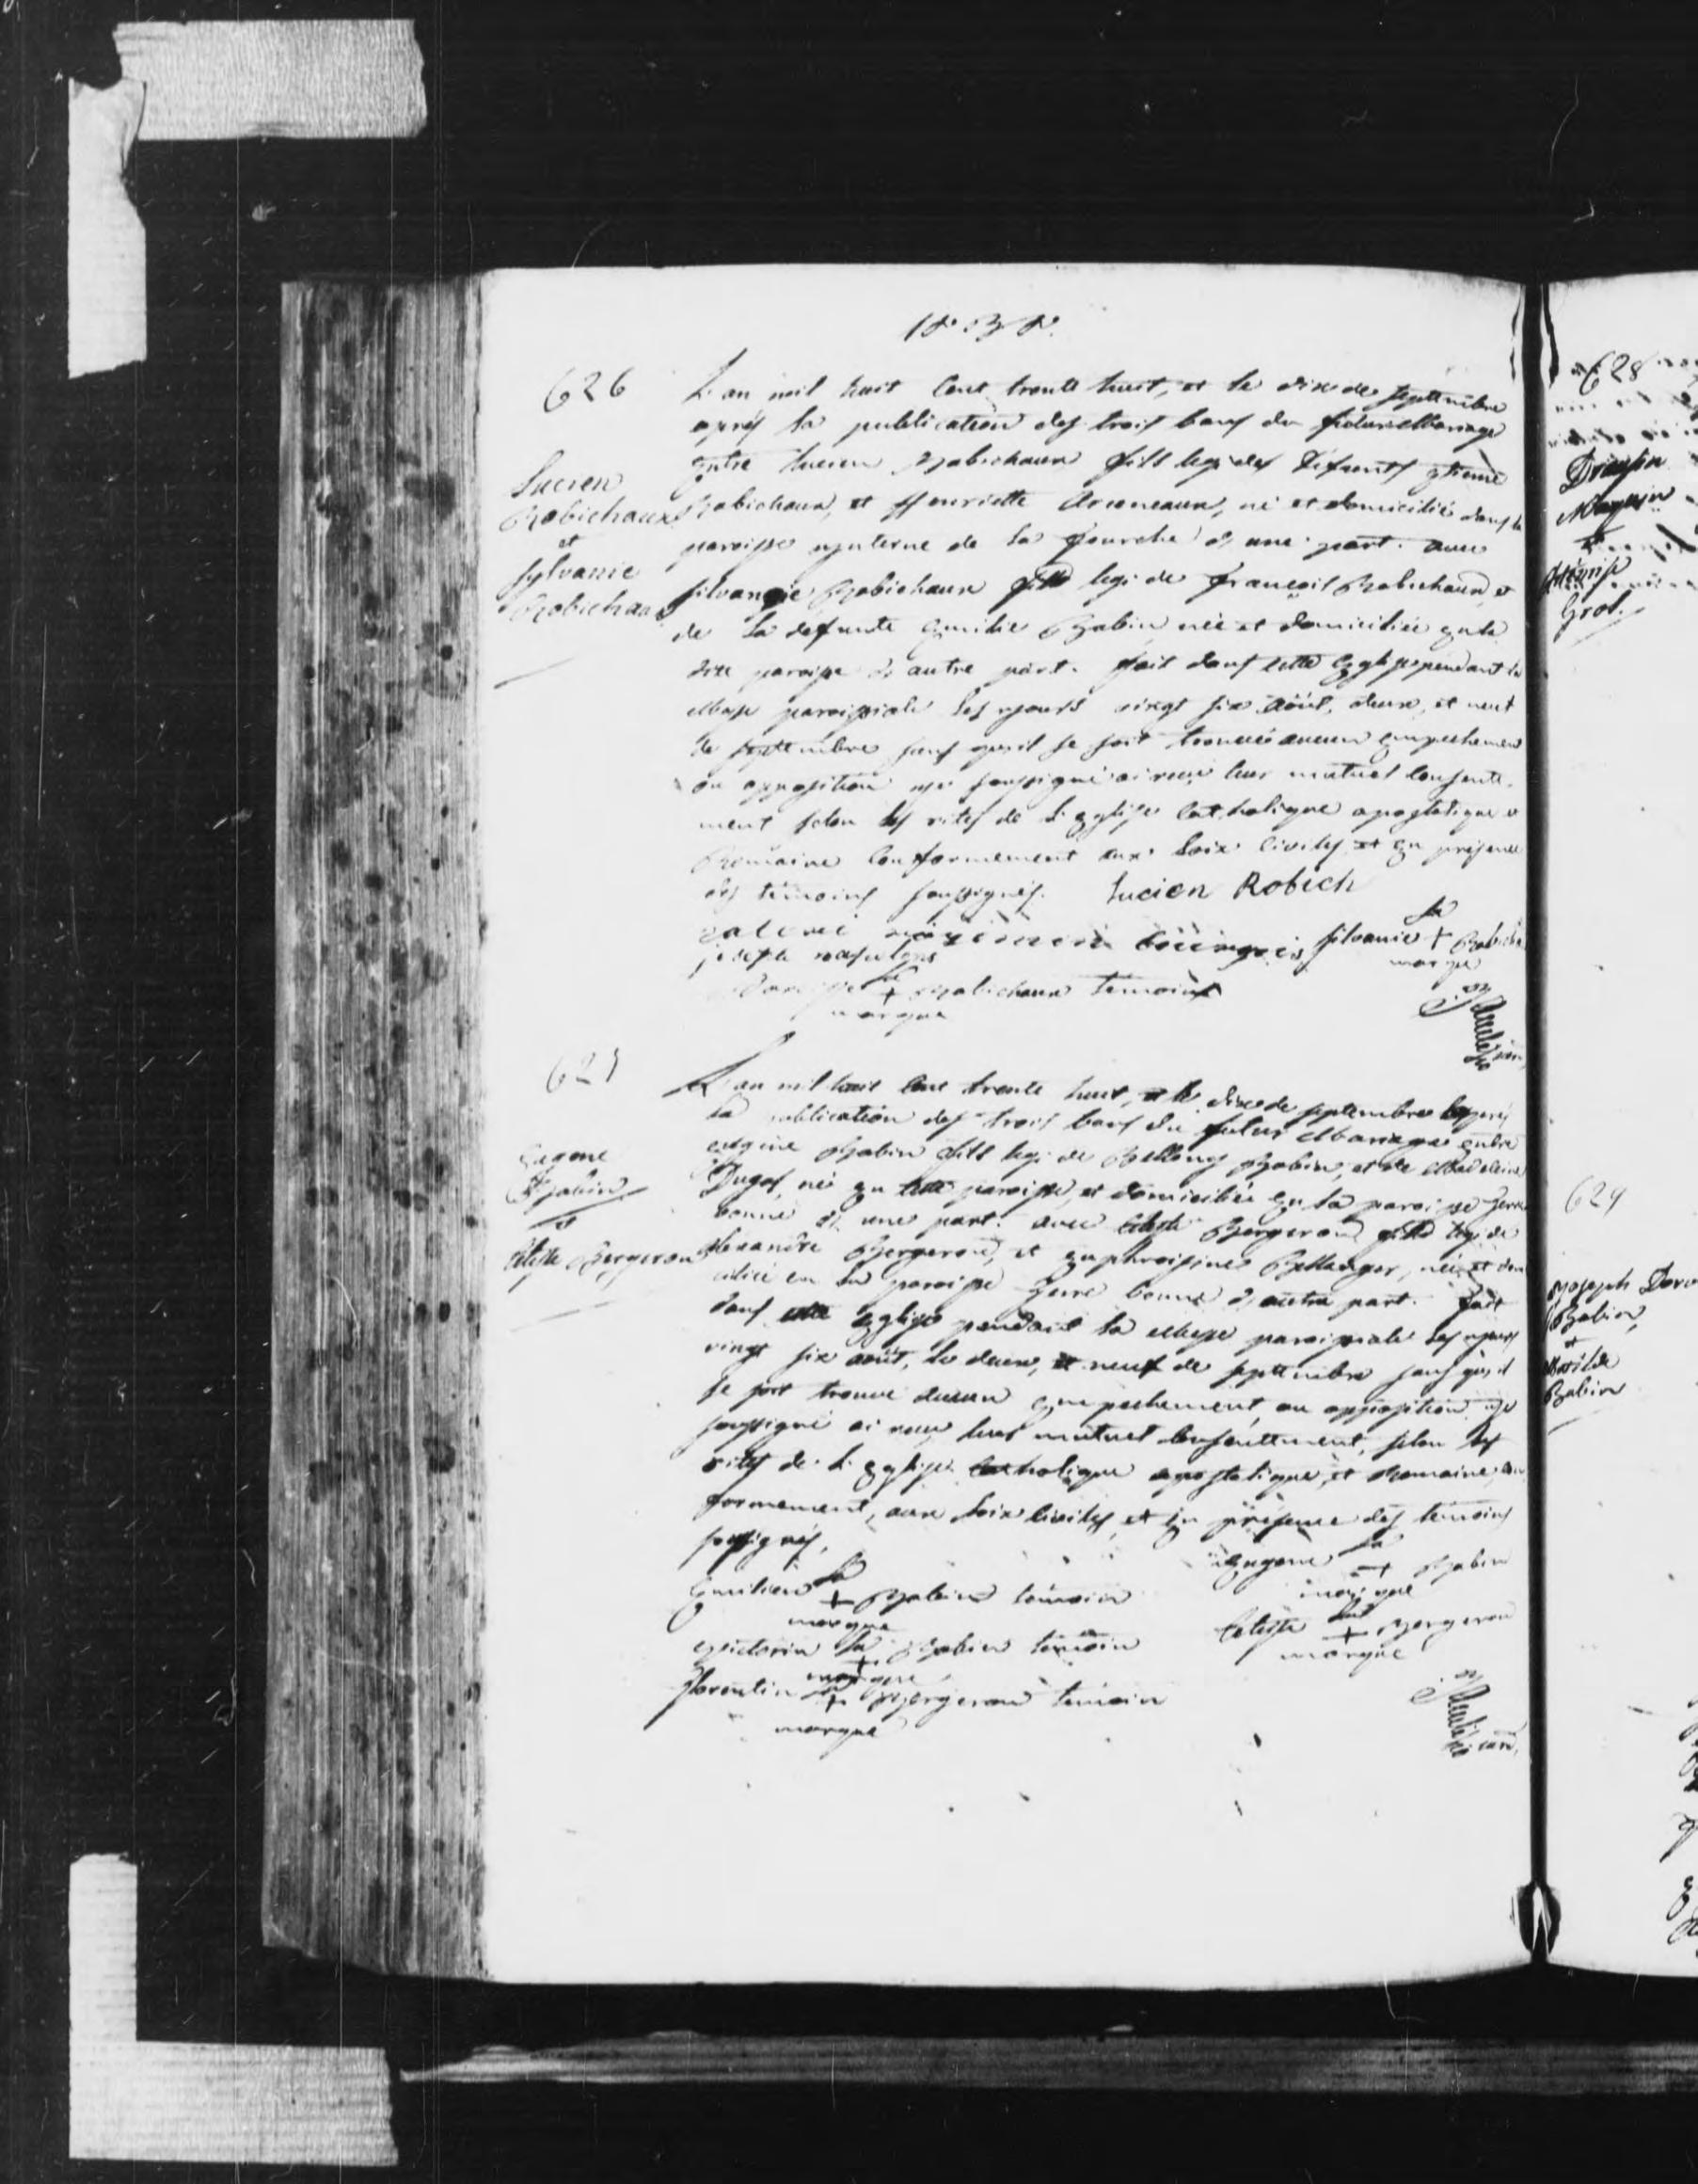 1838.
626
Lucien
Robichaux
et
Sylvanie
Robichaux
L'an mil huit cent trente huit, et le dix de septembre
après la publication des trois bans du futur Mariage
entre Lucien Robichaux fils legi. des défunts Etienne
Robichaux, et Henriette Arceneaux, né et domicilié dans la
paroisse interne de La fourche d'une part. avec
Silvanie Robichaux fille legi. de francois Robichaux, et
de la defunte Emilie Babin née et domiciliée en la
dite paroisse d'autre part. fait dans cette Eglise pendant la
Messe paroissiale les jours vingt six août, deux, et neuf
de septembre sans qu'il se soit trouvé aucun empechement
ou opposition je soussigné ai reçu leur mutuel consente-
ment selon les rites de L'Eglise Catholique apostolique et
Romaine conformement aux Loix Civiles et en présence
des témoins soussignés. Lucien Robich
Silvanie Sa + marque
Robichaux temoins
marque
627
Eugene
Babin
et
Celeste Bergeron
L'an mil huit cent trente huit, et le dix de septembre après
la publication des trois bans du futur Mariage entre
eugene Babin fils legi. de Bellony Babin, et de Madeleine
Dugas, né en cette paroisse, et domicilié en la paroisse Terre
bonne d'une part. avec Celeste Bergeron fille legi. de
Alexandre Bergeron, et Euphroisine Bellanger, née et domi
ciliée en la paroisse Terre bonne d'autre part. fait
dans cette Eglise pendant la Messe paroissiale les jours
vingt six août, le deux, et neuf de septembre sans qu'il
se soit trouvé aucun empechement, ou opposition je
soussigné ai reçu leur mutuel consentement, selon les
rites de L'Eglise Catholique apostolique, et Romaine con
formement, aux Loix Civiles, et en présence des temoins
soussignés.
Eugene Sa + marque Babin
Emilien Sa + marque Babin témoin
Celeste Sa + marque Bergeron
Victorin Sa + marque Babin témoin
florentin Sa + marque Bergeron temoin
628
Drausin
et
Grol.
629
Joseph
Babin
et
Matilde
Babin